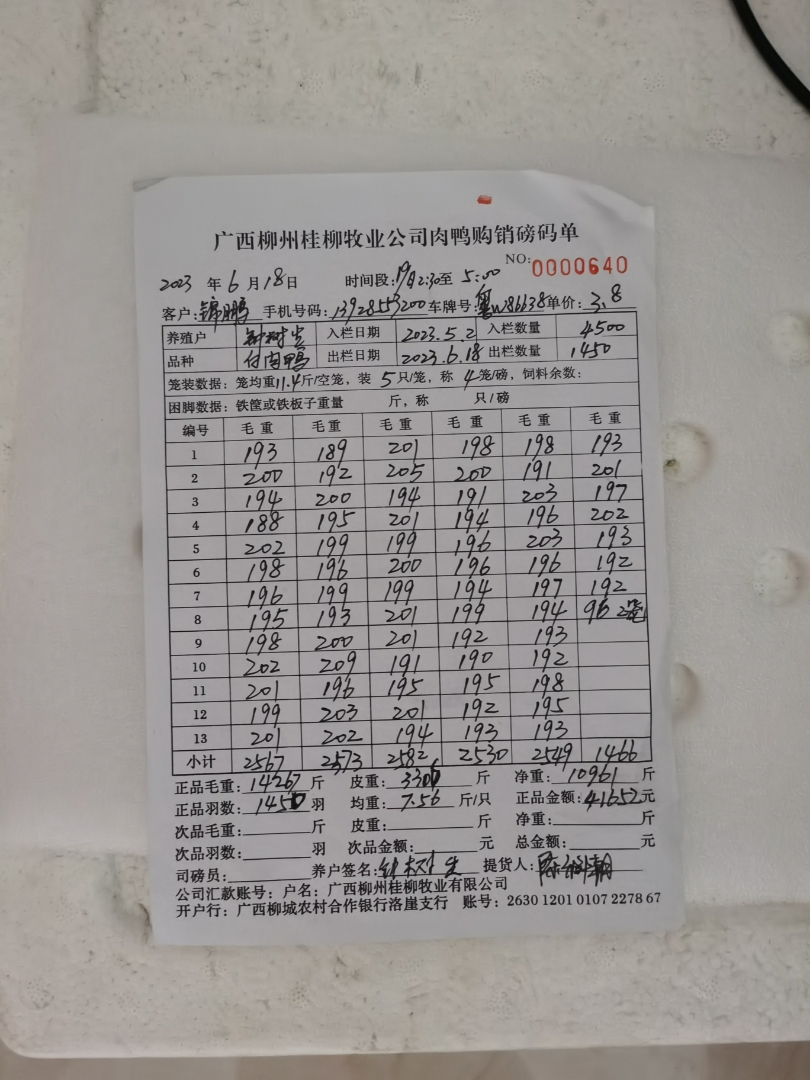 广西柳州桂柳牧业公司肉鸭购销磅码单
NO: 0000640
2023 年 6 月 18 日 时间段: 2:30 至 5:00
客户: 锦鹏 手机号码: 13928553200 车牌号: 粤W86638 单价: 3.8
养殖户 钟树生 入栏日期 2023.5.2 入栏数量 4500
品种 白肉鸭 出栏日期 2023.6.18 出栏数量 1450
笼装数据: 笼均重 11.4 斤/空笼, 装 5 只/笼, 称 4 笼/磅, 饲料余数:
困脚数据: 铁筐或铁板子重量 斤, 称 只/磅
编号 毛重 毛重 毛重 毛重 毛重 毛重
1 193 189 201 198 198 193
2 200 192 205 200 191 201
3 194 200 194 191 203 197
4 188 195 201 194 196 202
5 202 199 199 196 203 193
6 198 196 200 196 196 192
7 196 199 199 194 197 192
8 195 193 201 199 194 96 2笼
9 198 200 201 192 193
10 202 209 191 190 192
11 201 196 195 195 198
12 199 203 201 192 195
13 201 202 194 193 193
小计 2567 2573 2582 2530 2549 1466
正品毛重: 14267 斤 皮重: 3306 斤 净重: 10961 斤
正品羽数: 1450 羽 均重: 7.56 斤/只 正品金额: 41652 元
次品毛重: 斤 皮重: 斤 净重: 斤
次品羽数: 羽 次品金额: 元 总金额: 元
司磅员: 养户签名: 钟树生 提货人:
公司汇款账号: 户名: 广西柳州桂柳牧业有限公司
开户行: 广西柳城农村合作银行洛崖支行 账号: 2630 1201 0107 2278 67